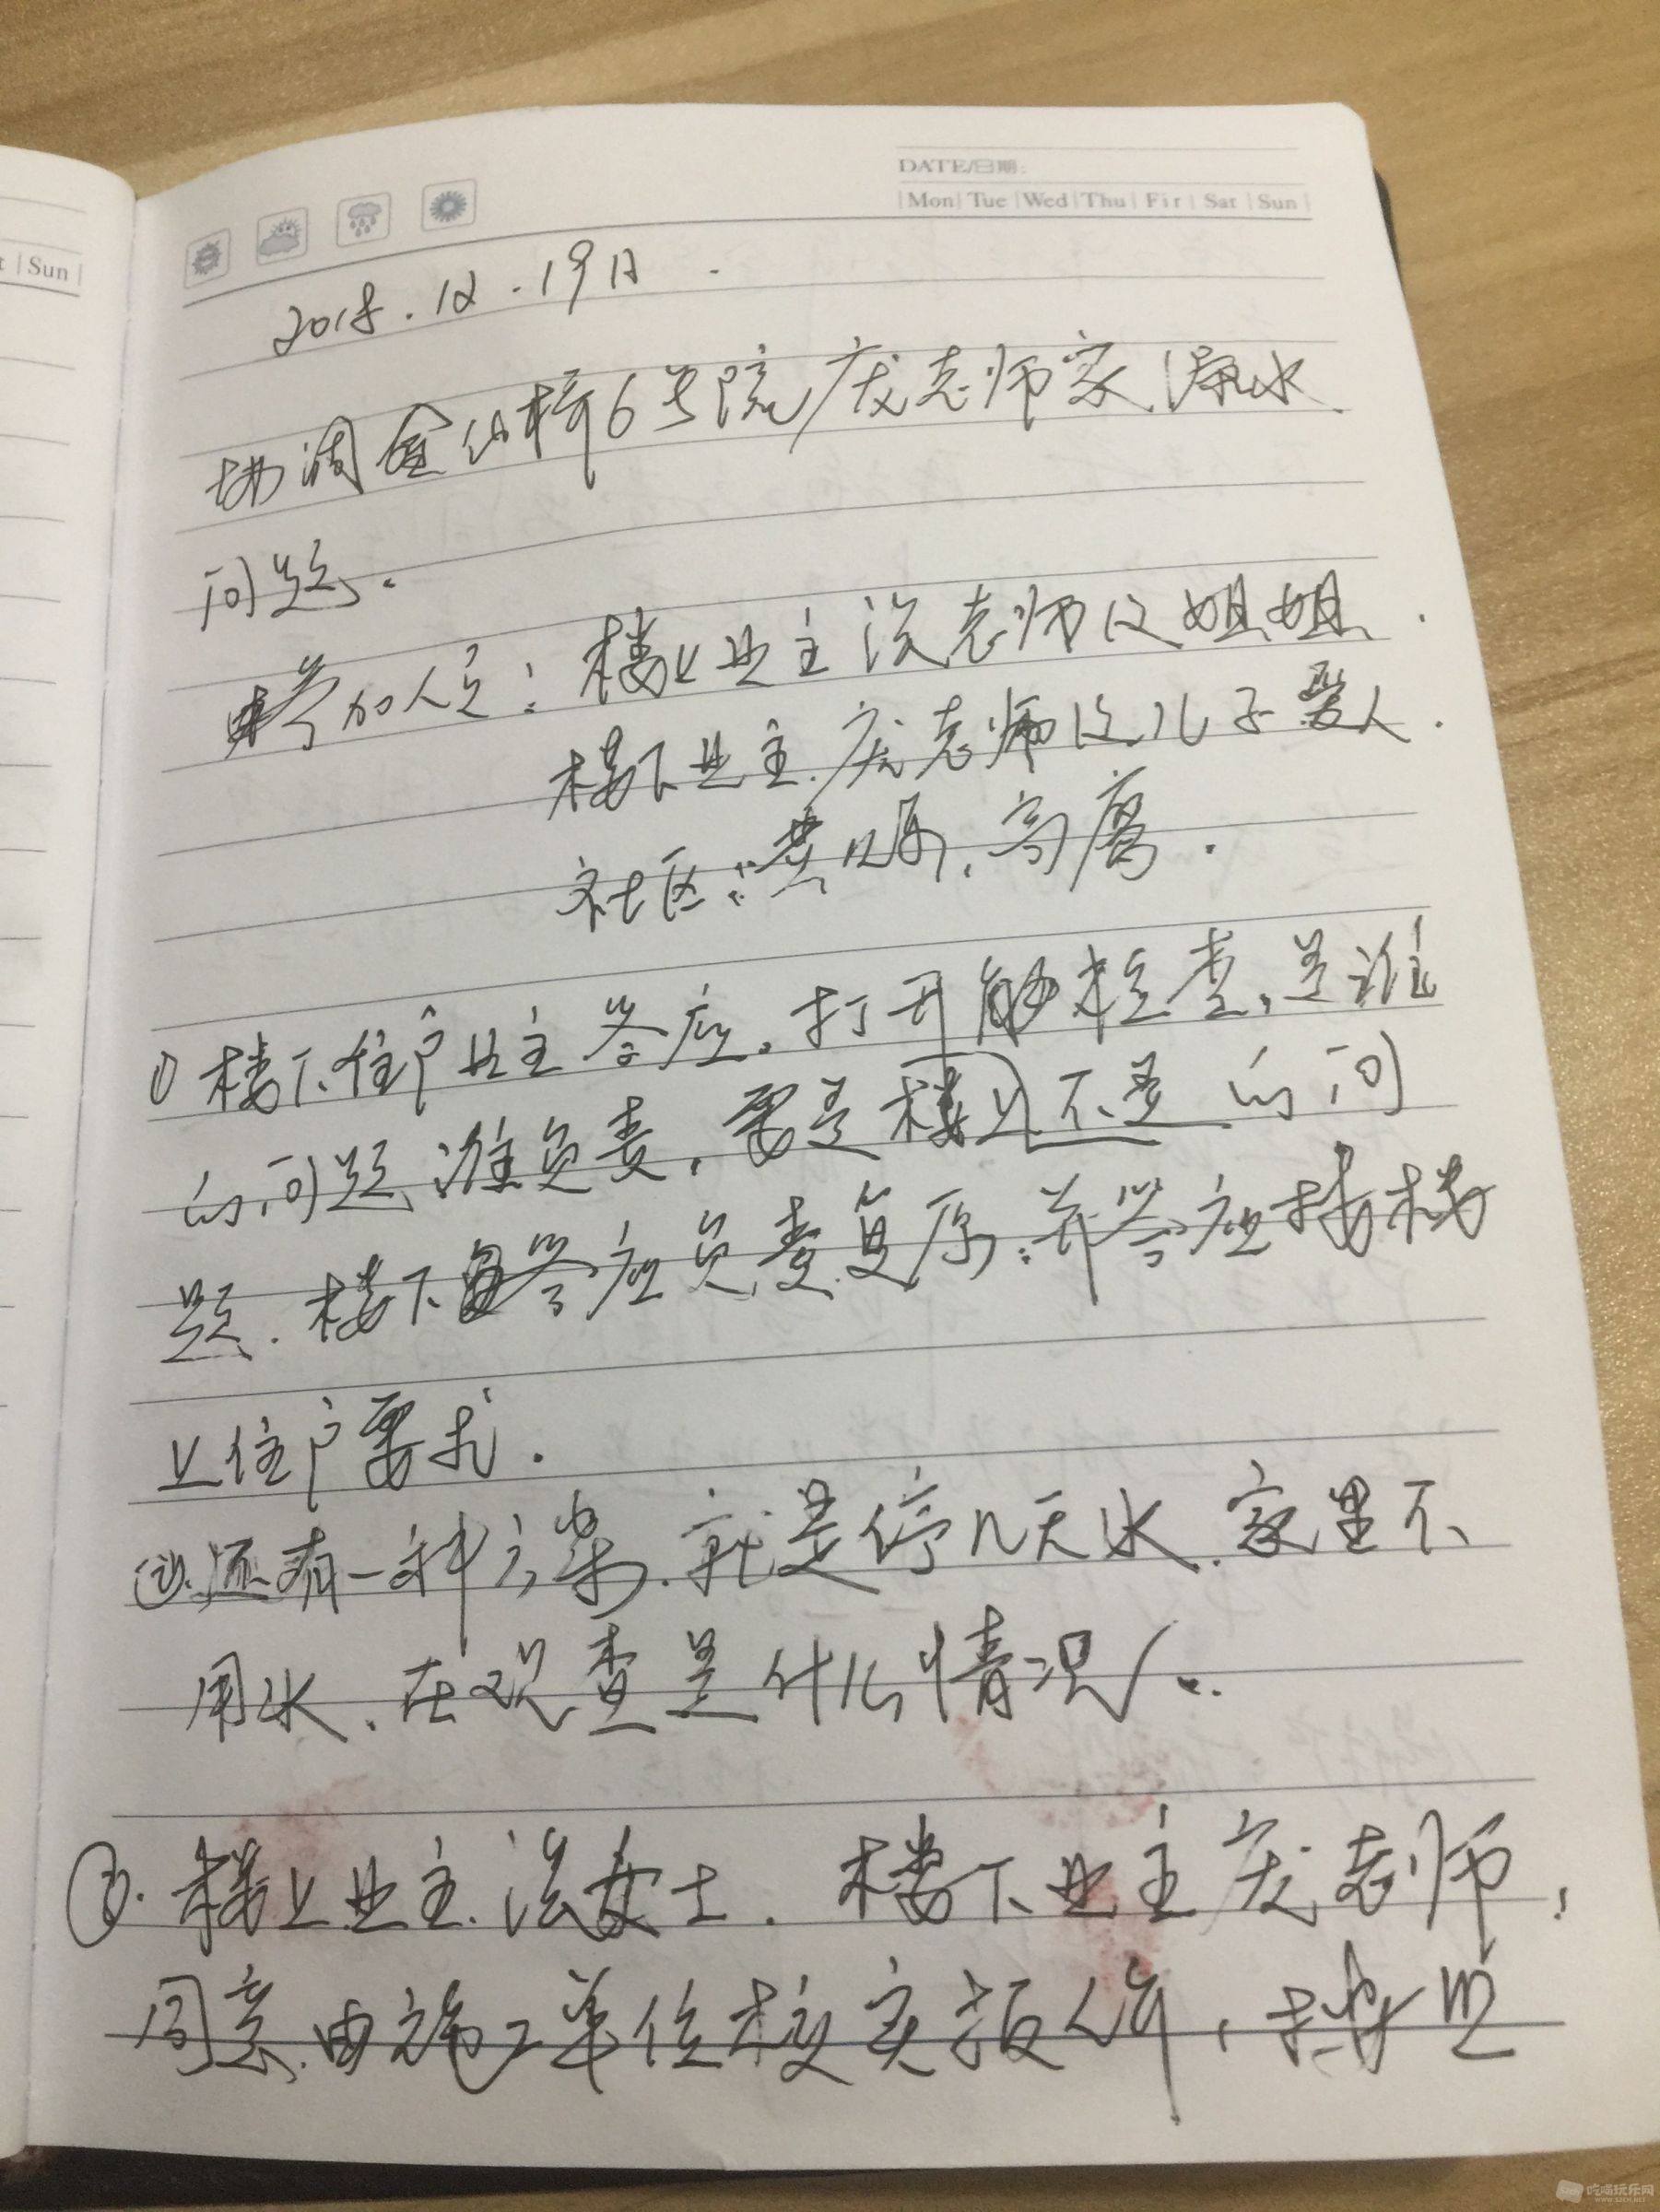 t | Sun |
DATE/日期:
| Mon | Tue | Wed | Thu | Fir | Sat | Sun |
2018.12.19日.
协调金仙桥6号院庞老师家漏水
问题.
参加人员: 楼上业主 老师的姐姐.
楼下业主.庞老师的儿子爱人.
社区: 黄 、高鹰.
① 楼下住户业主答应。打开 检查,是谁
的问题谁负责,要是楼上不是的问
题.楼下答应负责复原.并答应按楼
上住户要求.
②.还有一种方案.就是停几天水.家里不
用水、在观查是什么情况.
③.楼上业主. 女士. 楼下业主庞老师,
同意.由施工单位核实报价,按照
吃喝玩乐网
WWW.SZCH.NET